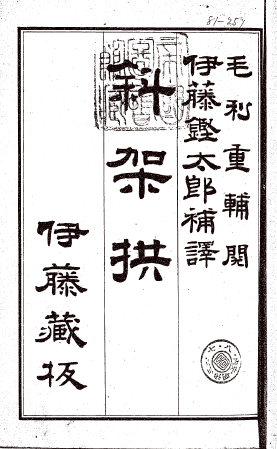 81-257
毛利重輔閱
伊藤鑑太郎補譯
斜架拱
伊藤藏板